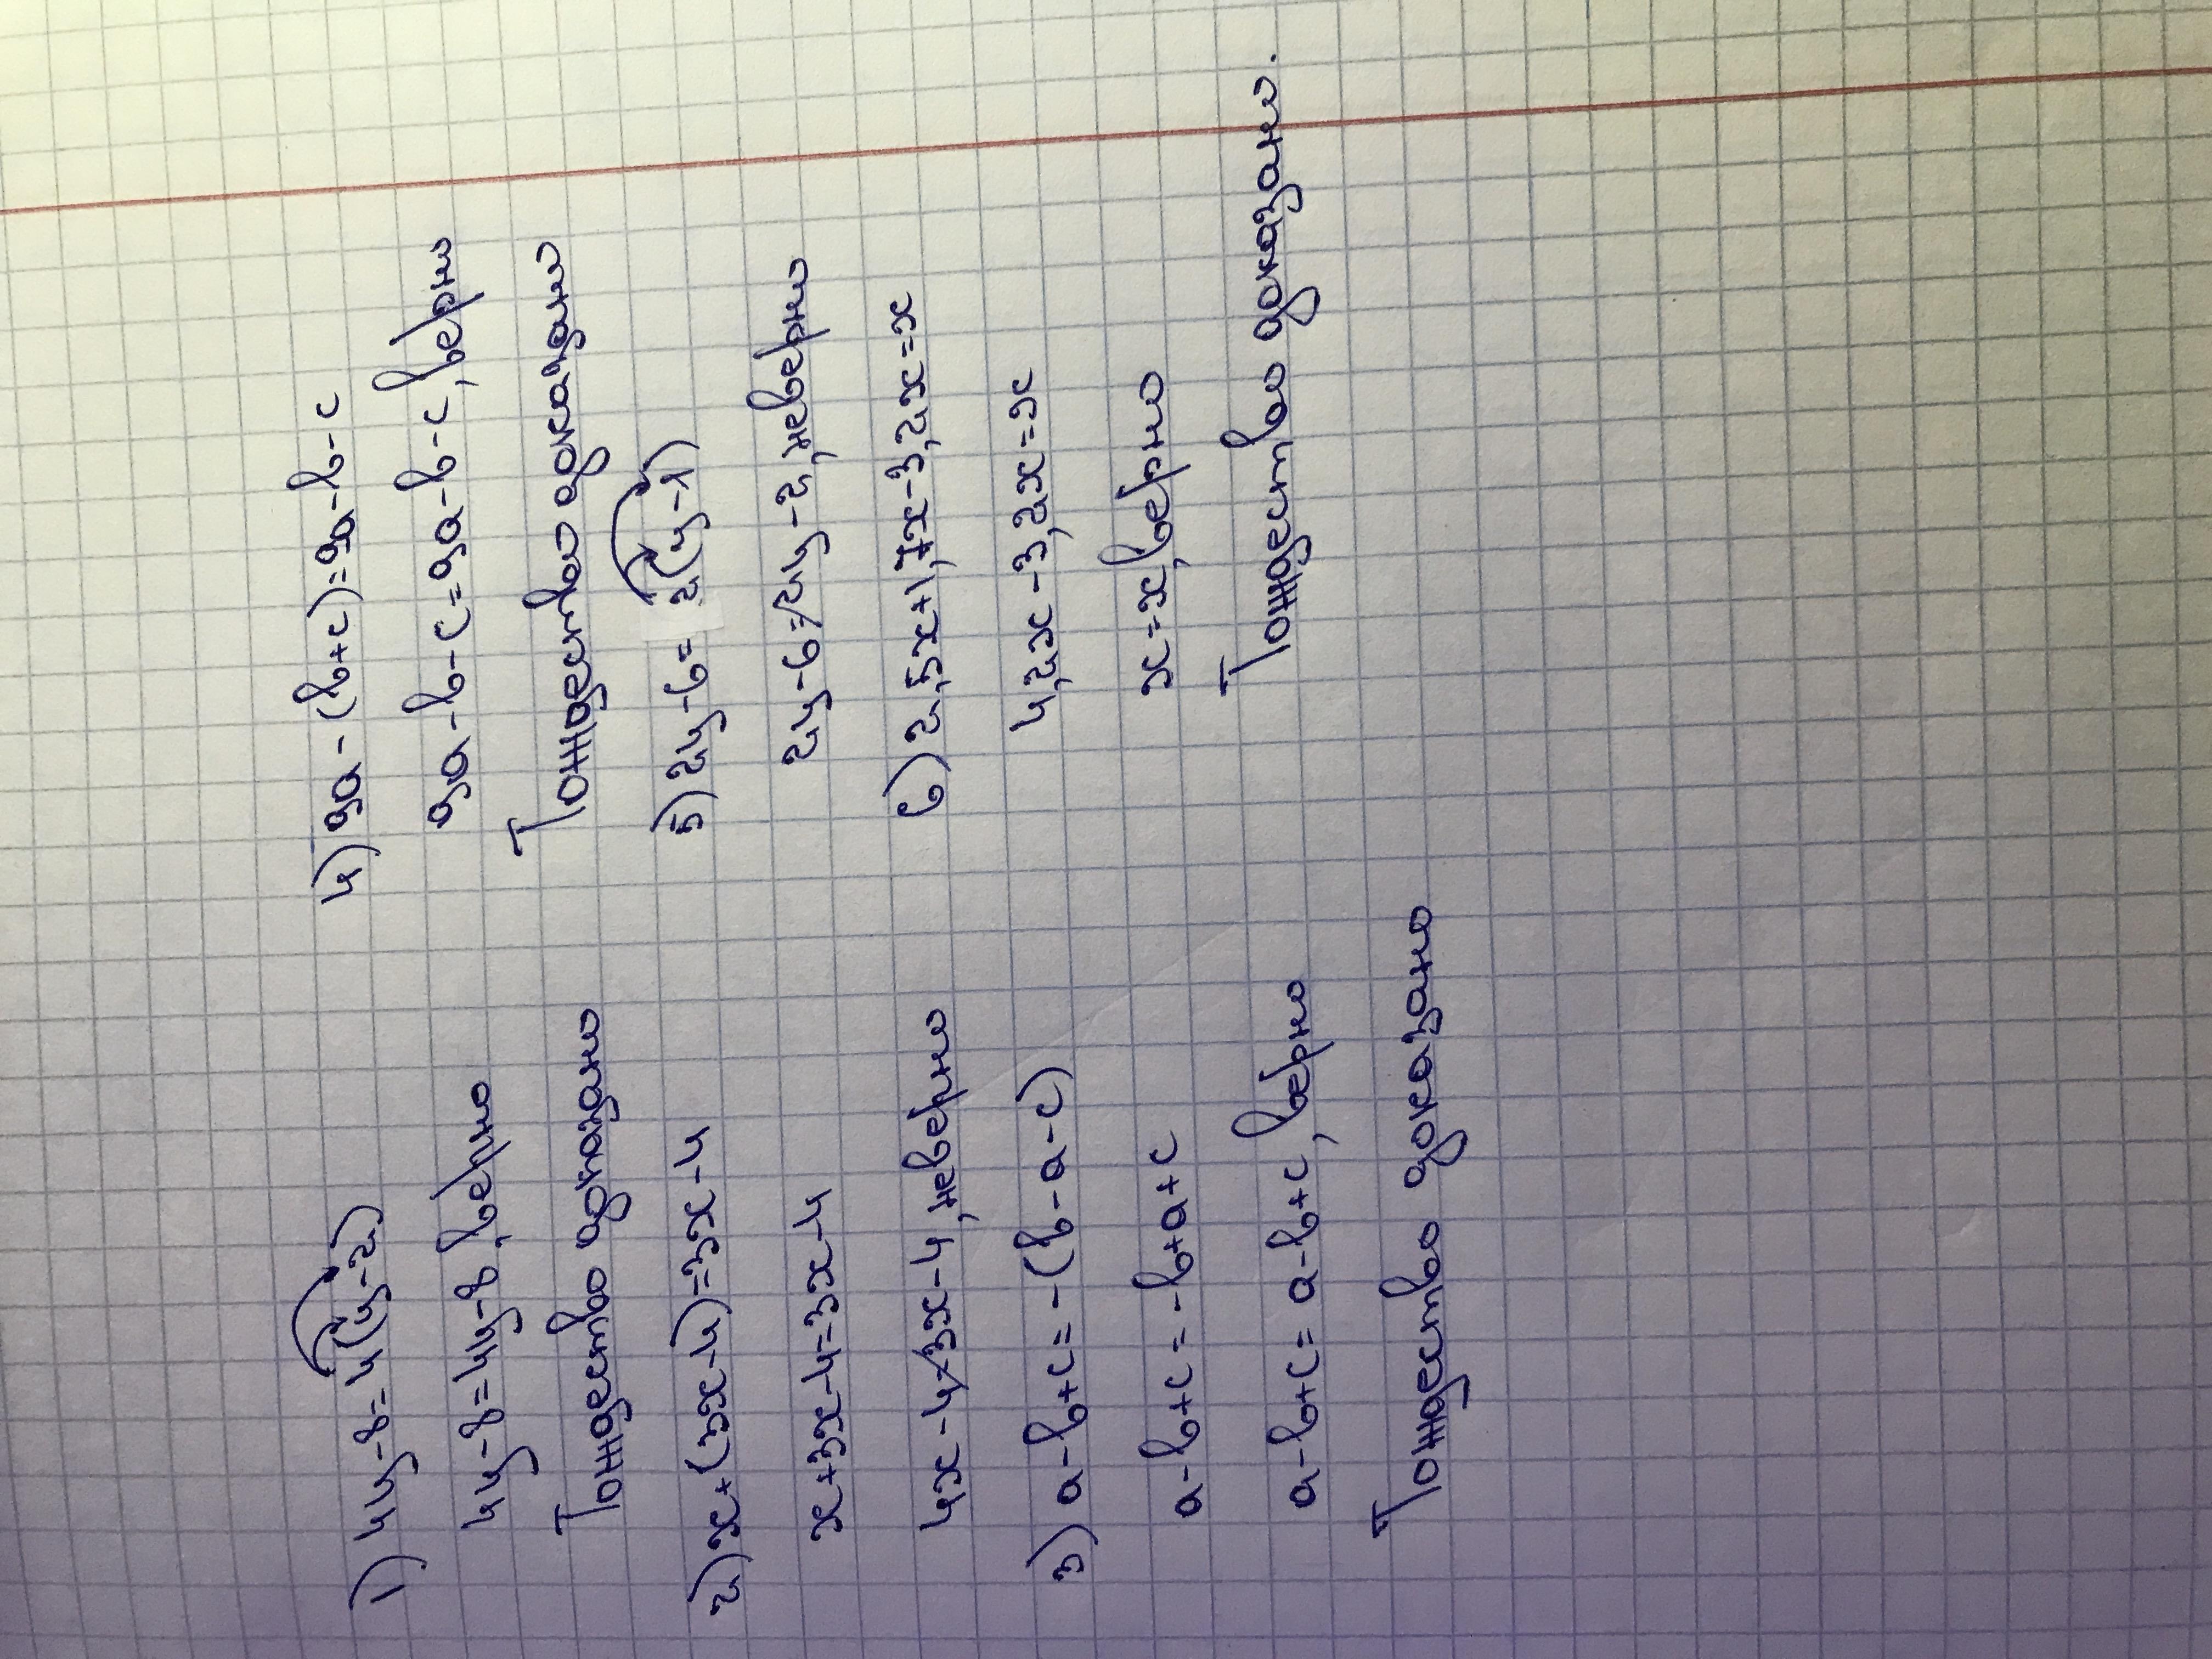 1) 4y-8=4(y-2)
4y-8=4y-8, верно
Тождество доказано
2) x+(3x-4)=3x-4
x+3x-4=3x-4
4x-4≠3x-4, неверно
3) a-b+c=-(b-a-c)
a-b+c=-b+a+c
a-b+c=a-b+c, верно
Тождество доказано
4) 9a-(b+c)=9a-b-c
9a-b-c=9a-b-c, верно
Тождество доказано
5) 2y-6=2(y-1)
2y-6≠2y-2, неверно
6) 2,5x+1,7x-3,2x=x
4,2x-3,2x=x
x=x, верно
Тождество доказано.